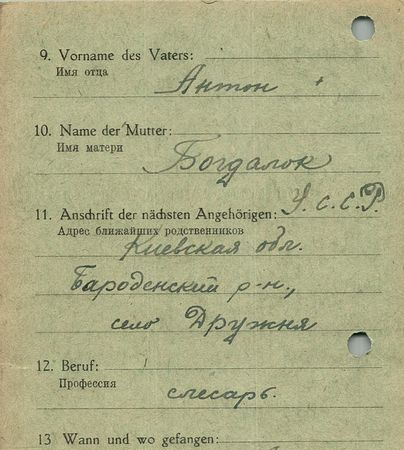 9. Vorname des Vaters:
Имя отца
Антон +
10. Name der Mutter:
Имя матери
Богдалок
11. Anschrift der nächsten Angehörigen: У.С.С.Р.
Адрес ближайших родственников
Киевская обл.
Бароденский р-н.,
село Дружня
12. Beruf:
Профессия
слесарь.
13 Wann und wo gefangen: